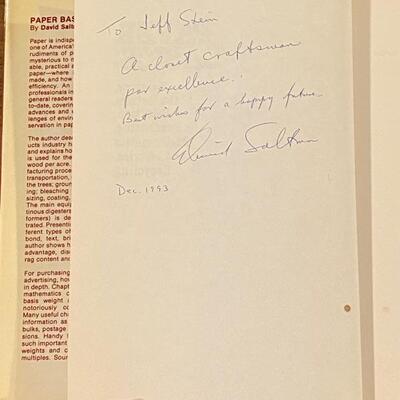 PAPER BAS
By David Saltm
Paper is indisp
one of America'
rudiments of p
mysterious to n
able, practical a
paper—where
made, and how
efficiency. An
professionals i
general readers
to-date, coverin
advances and
lenges of enviro
servation in pap
The author dea
ucts industry h
and explains ho
is used for the
wood per acre.
facturing proce
transportation,
the trees; groun
ing; bleaching
sizing, coating,
The main equip
tinous digesters
formers) is de
trated. Presenti
ferent types of
bond, text, bri
author shows h
advantage, dis
rag content and
For purchasing
advertising, hou
in depth. Chapt
mathematics o
basis weight a
notoriously co
Many useful cha
information as
bulks, postage
sions. Handy
such important
weights and c
multiples. Sour
To Jeff Stein
A closet craftsman
par excellence.
Best wishes for a happy future
David Saltman
Dec. 1993